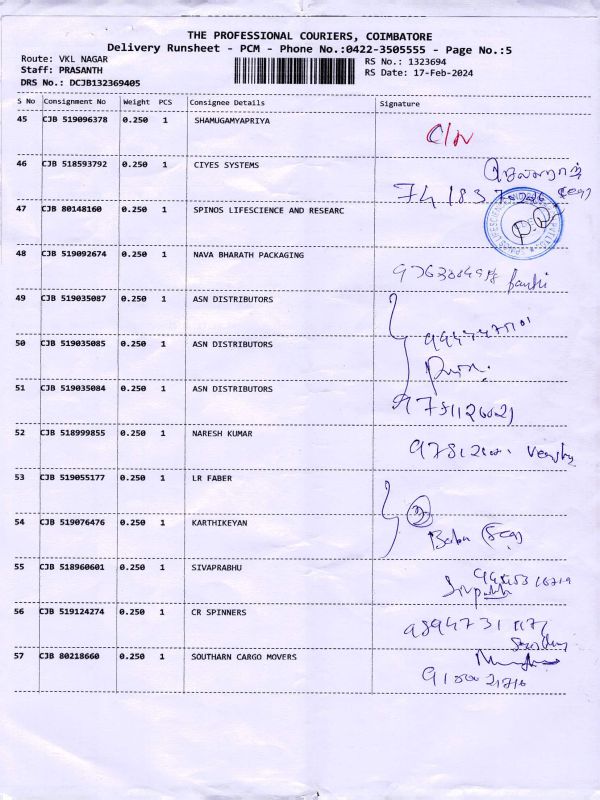 THE PROFESSIONAL COURIERS, COIMBATORE
Delivery Runsheet - PCM - Phone No.:0422-3505555 - Page No.:5
Route: VKL NAGAR RS No.: 1323694
Staff: PRASANTH RS Date: 17-Feb-2024
DRS No.: DCJB132369405
S No Consignment No Weight PCS Consignee Details Signature
45 CJB 519096378 0.250 1 SHAMUGAMYAPRIYA
C/N
46 CJB 518593792 0.250 1 CIYES SYSTEMS
47 CJB 80148160 0.250 1 SPINOS LIFESCIENCE AND RESEARC
48 CJB 519092674 0.250 1 NAVA BHARATH PACKAGING
49 CJB 519035087 0.250 1 ASN DISTRIBUTORS
50 CJB 519035085 0.250 1 ASN DISTRIBUTORS
51 CJB 519035084 0.250 1 ASN DISTRIBUTORS
52 CJB 518999855 0.250 1 NARESH KUMAR
53 CJB 519055177 0.250 1 LR FABER
54 CJB 519076476 0.250 1 KARTHIKEYAN
Babu
55 CJB 518960601 0.250 1 SIVAPRABHU
56 CJB 519124274 0.250 1 CR SPINNERS
57 CJB 80218660 0.250 1 SOUTHARN CARGO MOVERS